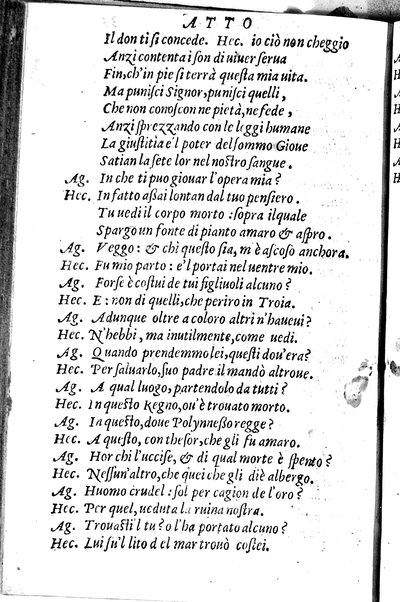 ATTO
Il don ti si concede. Hec. io ciò non cheggio
Anzi contenta i son di uiuer serua
Fin, ch'in pie si terrà questa mia uita.
Ma punisci Signor, punisci quelli,
Che non conoscon ne pietà, ne fede,
Anzi sprezzando con le leggi humane
La giustitia e'l poter del sommo Gioue
Satian la sete lor nel nostro sangue.
Ag. In che ti puo giouar l'opera mia?
Hec. In fatto assai lontan dal tuo pensiero.
Tu uedi il corpo morto: sopra il quale
Spargo un fonte di pianto amaro & aspro.
Ag. Veggo: & chi questo sia, m'è ascoso anchora.
Hec. Fu mio parto: e'l portai nel uentre mio.
Ag. Forse è costui de tui figliuoli alcuno?
Hec. E: non di quelli, che periro in Troia.
Ag. Adunque oltre a coloro altri n'haueui?
Hec. N'hebbi, ma inutilmente, come uedi.
Ag. Quando prendemmo lei, questi dou'era?
Hec. Per saluarlo, suo padre il mandò altroue.
Ag. A qual luogo, partendolo da tutti?
Hec. In questo Regno, ou'è trouato morto.
Ag. In questo, doue Polynnesso regge?
Hec. A questo, con thesor, che gli fu amaro.
Ag. Hor chi l'uccise, & di qual morte è spento?
Hec. Nessun'altro, che quei che gli diè albergo.
Ag. Huomo crudel: sol per cagion de l'oro?
Hec. Per quel, ueduta la ruina nostra.
Ag. Trouastil tu? o l'ha portato alcuno?
Hec. Lui su'l lito del mar trouò costei.